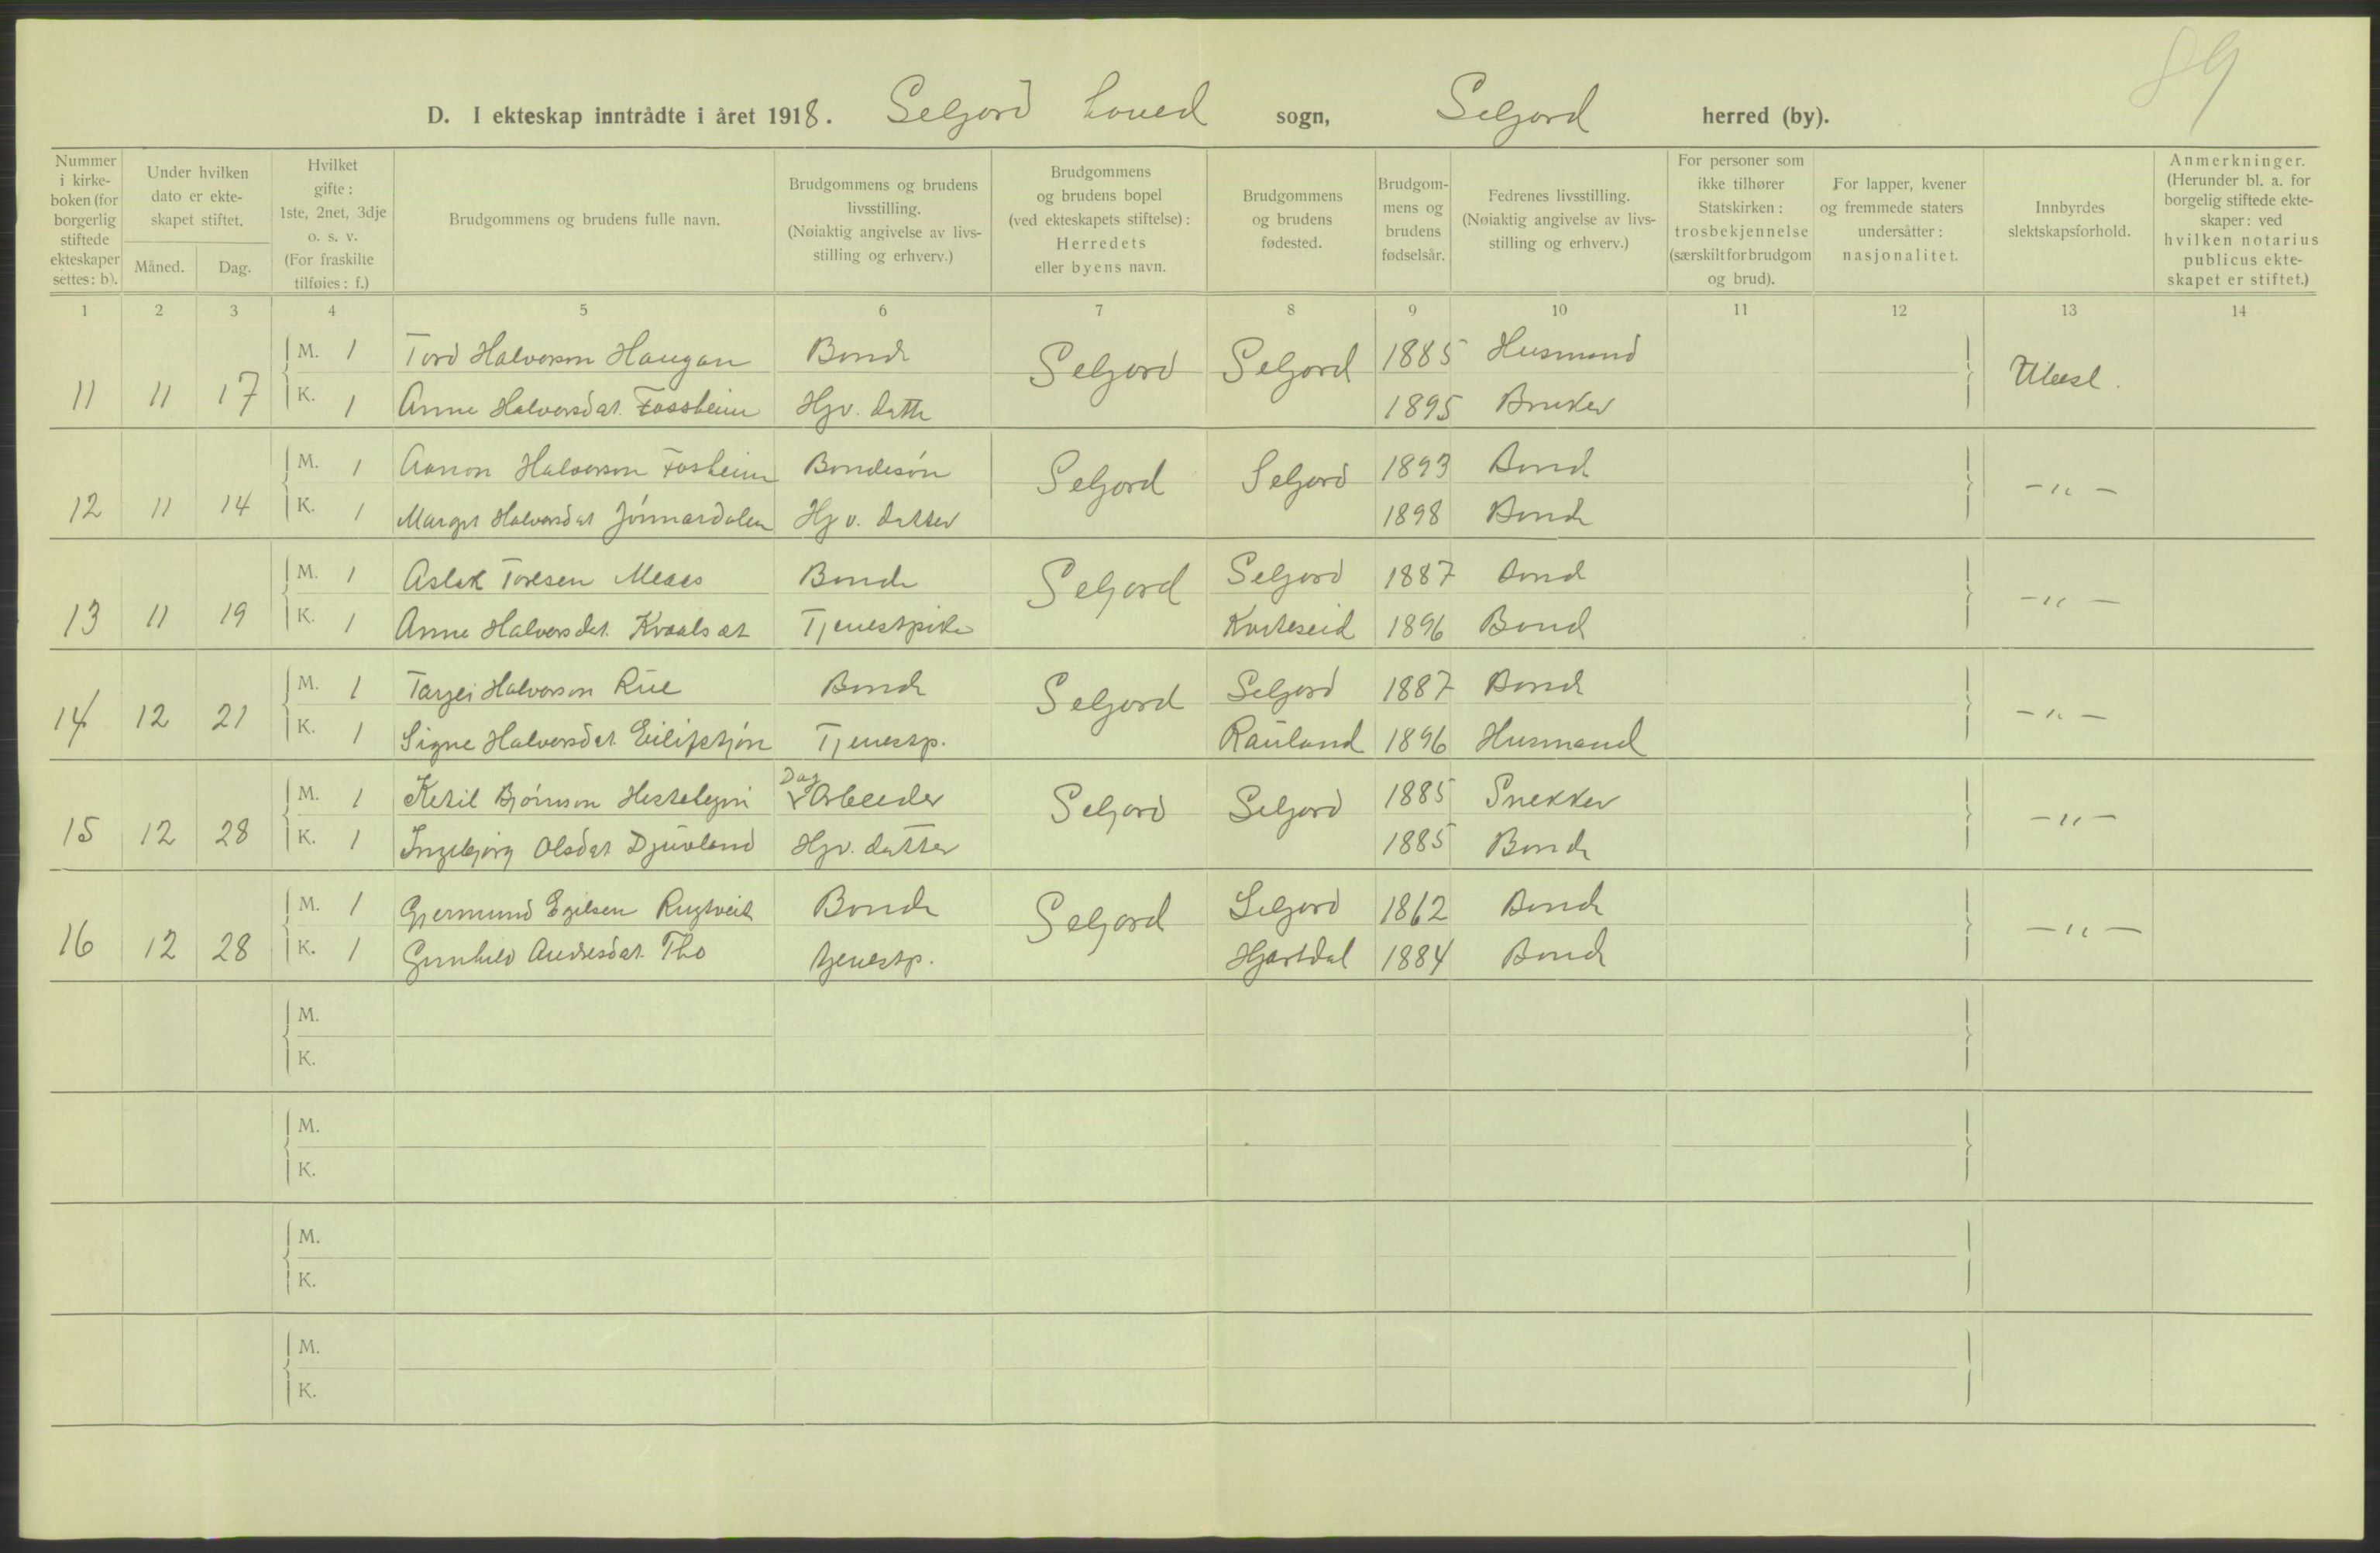 89
D. I ekteskap inntrådte i året 1918. Seljord hoved sogn, Seljord herred (by).
Nummer i kirkeboken (for borgerlig stiftede ekteskaper settes: b).
Under hvilken dato er ekteskapet stiftet.
Måned. Dag.
Hvilket gifte: 1ste, 2net, 3dje o. s. v. (For fraskilte tilføies: f.)
Brudgommens og brudens fulle navn.
Brudgommens og brudens livsstilling. (Nøiaktig angivelse av livsstilling og erhverv.)
Brudgommens og brudens bopel (ved ekteskapets stiftelse): Herredets eller byens navn.
Brudgommens og brudens fødested.
Brudgommens og brudens fødselsår.
Fedrenes livsstilling. (Nøiaktig angivelse av livsstilling og erhverv.)
For personer som ikke tilhører Statskirken: trosbekjennelse (særskilt for brudgom og brud).
For lapper, kvener og fremmede staters undersåtter: nasjonalitet.
Innbyrdes slektskapsforhold.
Anmerkninger. (Herunder bl. a. for borgelig stiftede ekteskaper: ved hvilken notarius publicus ekteskapet er stiftet.)
1 2 3 4 5 6 7 8 9 10 11 12 13 14
M. 1 Tord Halvorson Haugan Bonde Seljord Seljord 1885 Husmand
11 11 17 K. 1 Anne Halvorsdat. Fossheim Hjv. datte 1895 Bruker Ubesl.
M. 1 Aanon Halvorson Fosheim Bondesøn Seljord Seljord 1893 Bond
12 11 14 K. 1 Margit Halvorsdat Jönnardalen Hjv. datter 1898 Bonde — " —
M. 1 Aslak Toresen Meaas Bonde Seljord Seljord 1887 Bond
13 11 19 K. 1 Anne Halvorsdat. Kvaalsat Tjenestpike Kviteseid 1896 Bond — " —
M. 1 Tarjei Halvorson Rue Bonde Seljord Seljord 1887 Bonde
14 12 21 K. 1 Signe Halvorsdat. Eilifstjön Tjenestp. Rauland 1896 Husmand — " —
M. 1 Ketil Björnson Hestehegni Dag Arbeider Seljord Seljord 1885 Snekker
15 12 28 K. 1 Ingebjörg Olsdat. Djuvland Hjv. datter 1885 Bonde — " —
M. 1 Gjermund Egilsen Rugtveit Bonde Seljord Seljord 1862 Bonde
16 12 28 K. 1 Gunhild Andresdat. Tho tjenestp. Hjartdal 1884 Bonde — " —
M.
K.
M.
K.
M.
K.
M.
K.